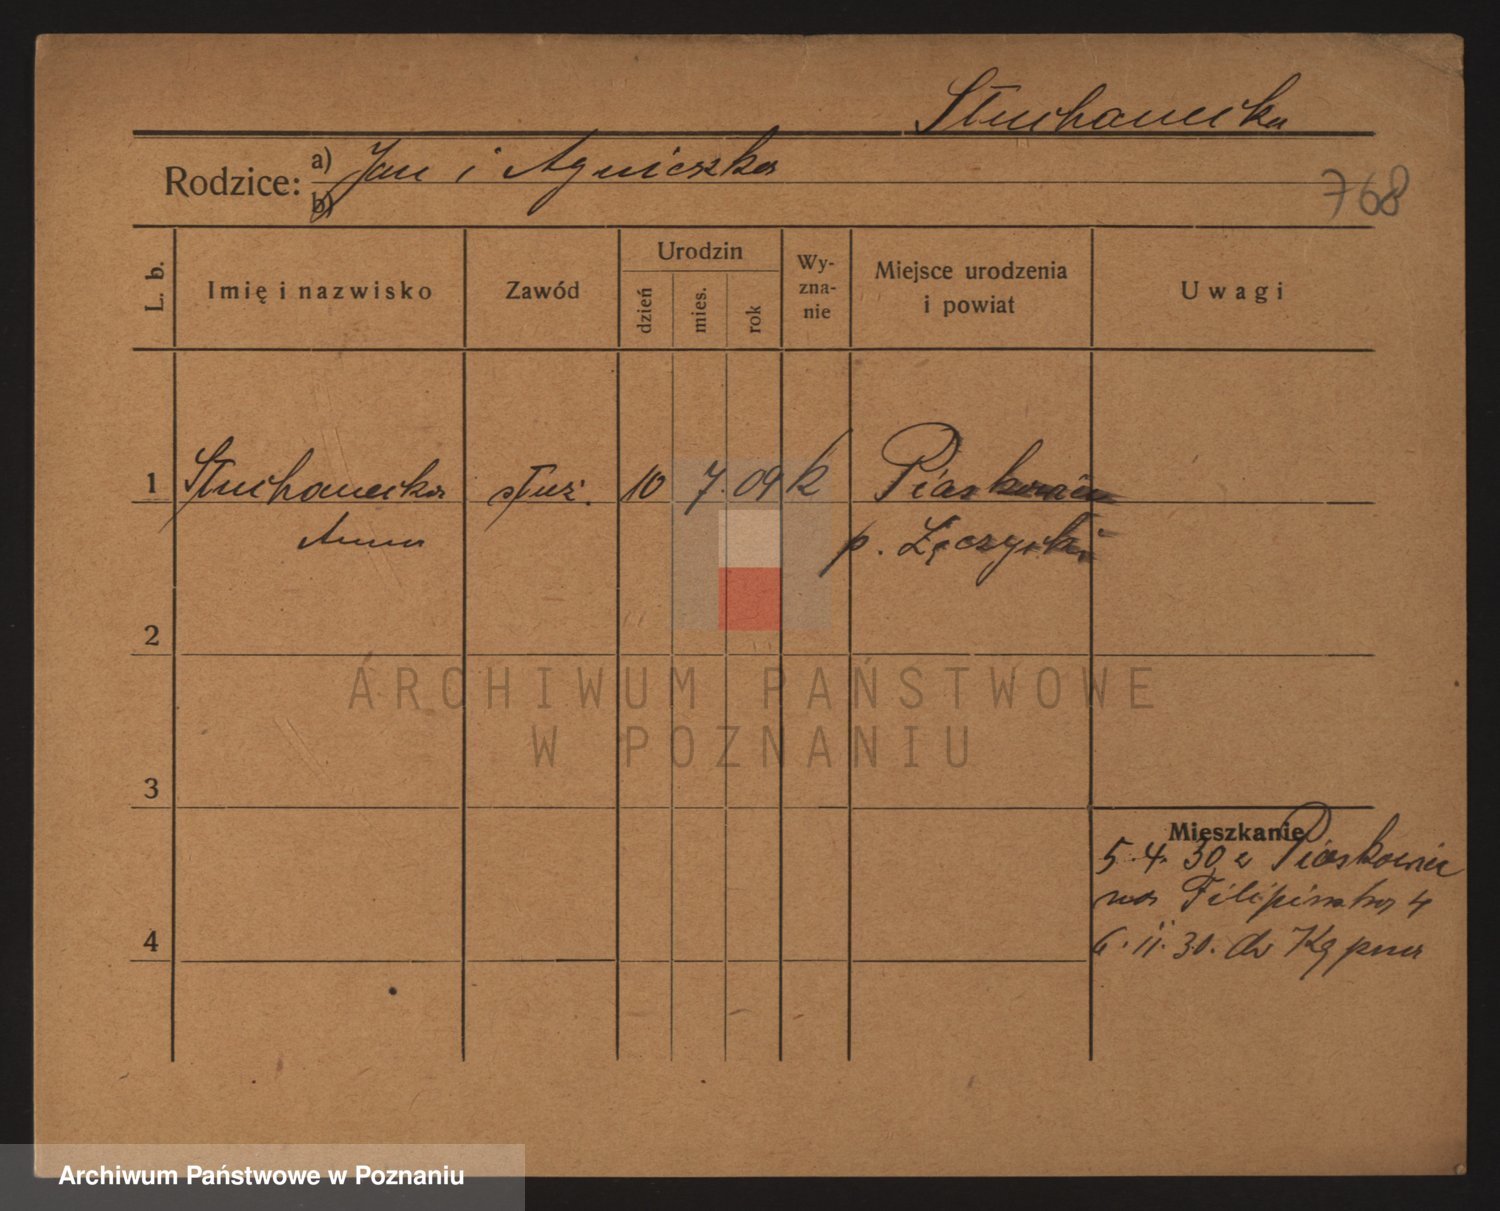 Stuchanecka
Rodzice: a) Jan i Agnieszka
b)
768
L. b.
Imię i nazwisko
Zawód
Urodzin
dzień
mies.
rok
Wy-
zna-
nie
Miejsce urodzenia
i powiat
Uwagi
1 Stuchanecka służ. 10 7. 09 k Piaskowice
Anna p. Łęczycki
2
3
4
Mieszkanie
5.4. 30 z Piaskowic
na Filipińska 4
6. 11. 30. do Kępna
ARCHIWUM PAŃSTWOWE
W POZNANIU
Archiwum Państwowe w Poznaniu